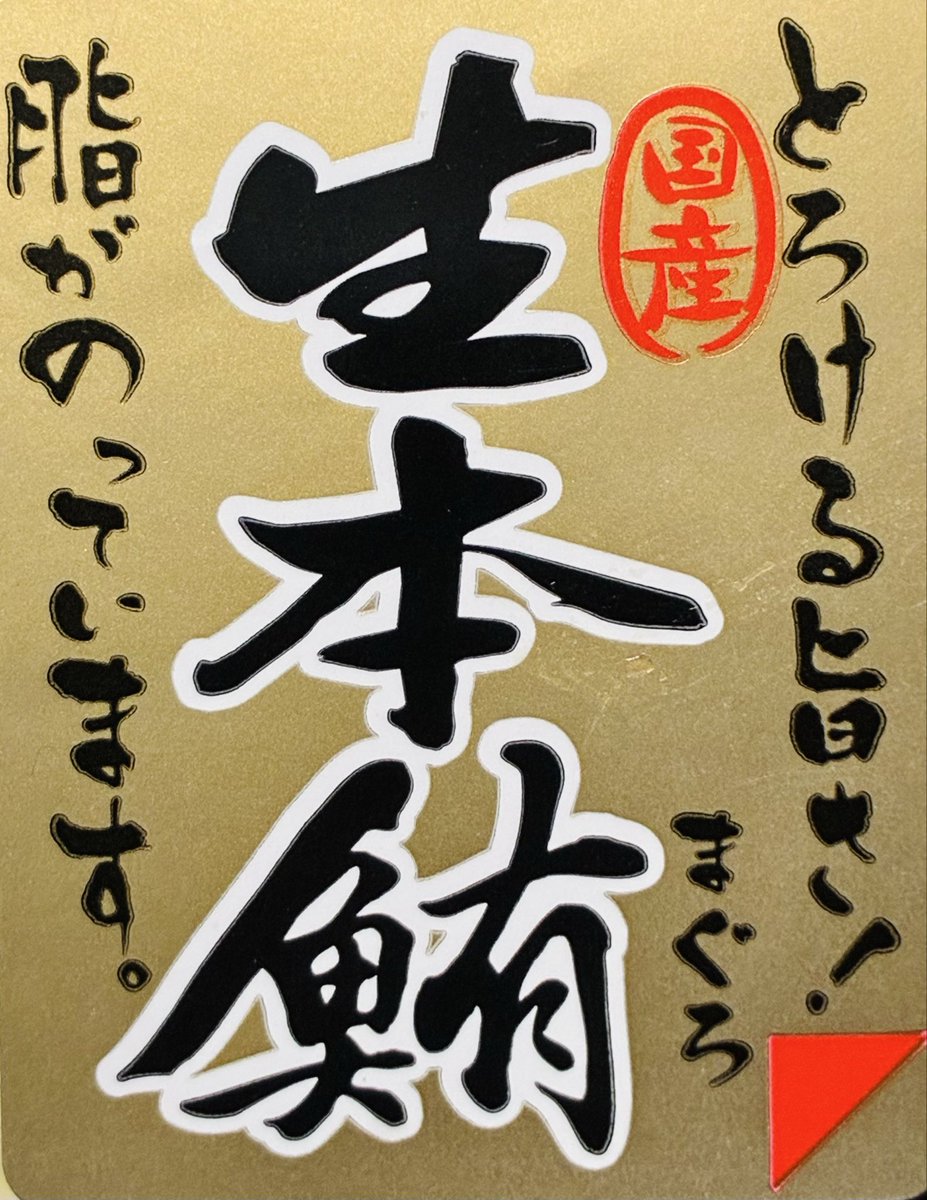 とろける旨さ！
国産
生本鮪
まぐろ
脂がのっています。